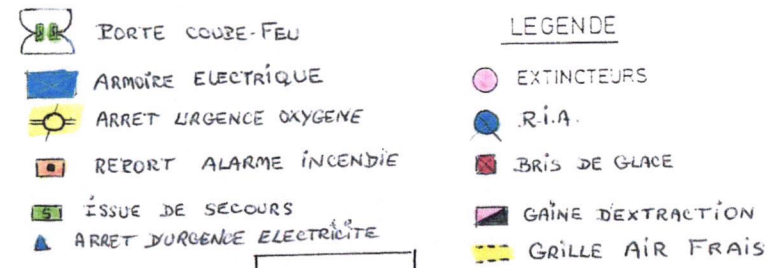 PORTE COUPE-FEU
ARMOIRE ELECTRIQUE
ARRET URGENCE OXYGENE
REPORT ALARME INCENDIE
S ISSUE DE SECOURS
ARRET D'URGENCE ELECTRICITE
LEGENDE
EXTINCTEURS
R.I.A.
BRIS DE GLACE
GAINE D'EXTRACTION
GRILLE AIR FRAIS